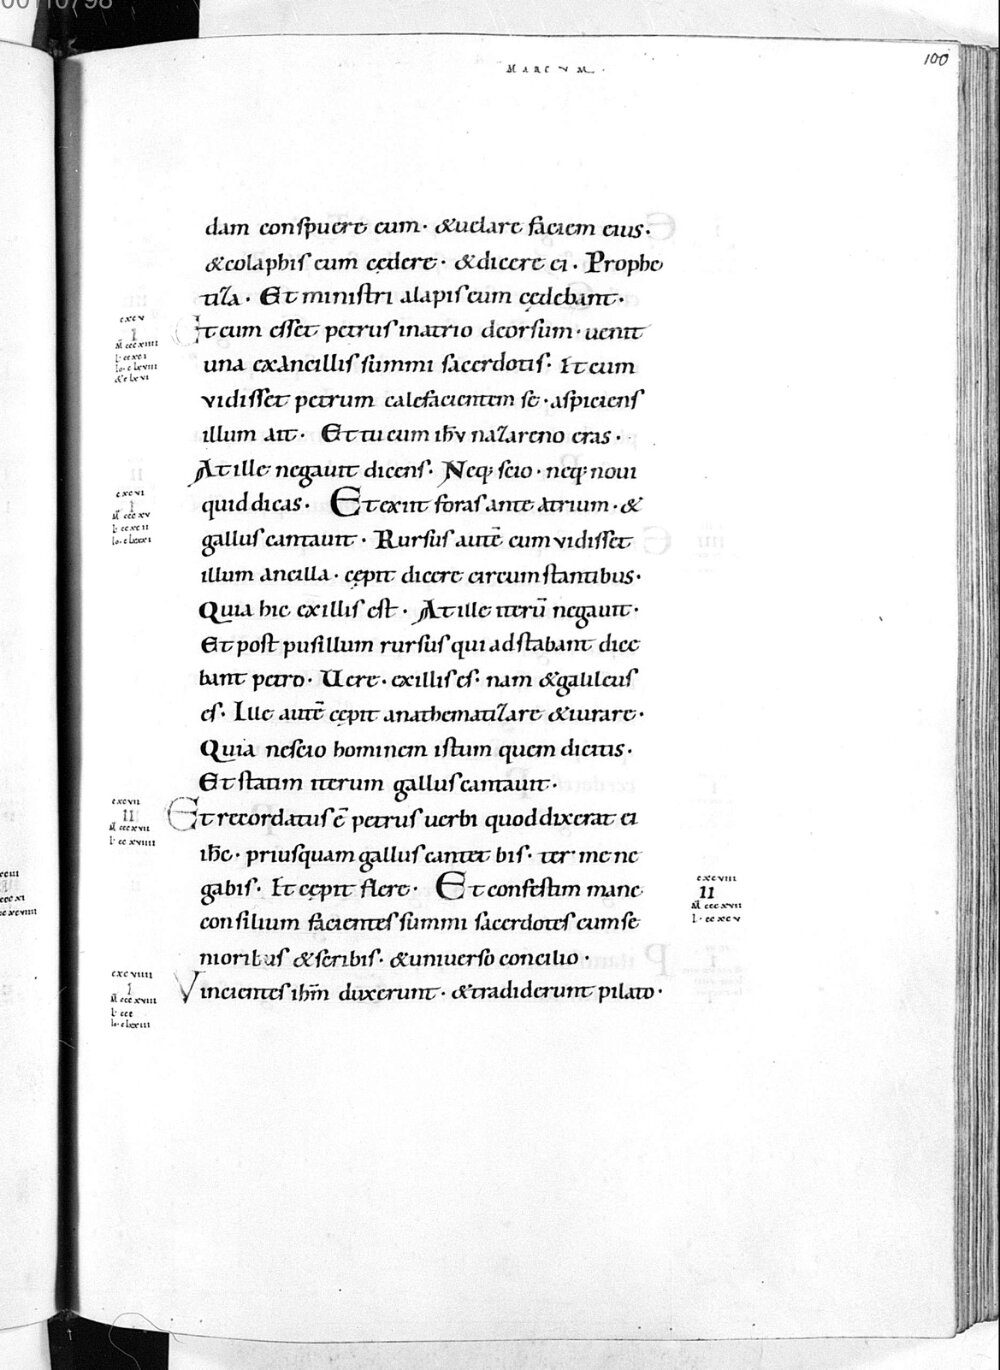 00110798
MARCVM.
100
dam conspuere eum· &uelare faciem eius·
&colaphis eum cędere· &dicere ei· Prophe
tiza· Et ministri alapis eum cędebant·
Et cum esset petrus in atrio deorsum· uenit
una ex ancillis summi sacerdotis· Et cum
vidisset petrum calefacientem se· aspiciens
illum ait· Et tu cum ihv nazareno eras·
At ille negauit dicens· Neq; scio· neq; noui
quid dicas· Et exiit foras ante atrium· &
gallus cantauit· Rursus autē cum vidisset
illum ancilla· cępit dicere circumstantibus·
Quia hic ex illis est· At ille iterū negauit·
Et post pusillum rursus qui adstabant dice
bant petro· Uere· ex illis es· nam &galileus
es· Ille autē cępit anathematizare &iurare·
Quia nescio hominem istum quem dicitis·
Et statim iterum gallus cantauit·
Et recordatus ē petrus uerbi quod dixerat ei
ihc· priusquam gallus cantet bis· ter me ne
gabis· Et cępit flere· Et confestim mane
consilium facientes summi sacerdotes cum se
nioribus &scribis· &uniuerso concilio·
Vincientes ihm duxerunt· &tradiderunt pilato·
cxcv
I
M cccxiiii
cxcvi
I
M cccxv
L ccxcii
cxcvii
II
M cccxvii
cxcviii
II
M cccxvii
L ccxcv
cxcviiii
I
M cccxviii
L ccc